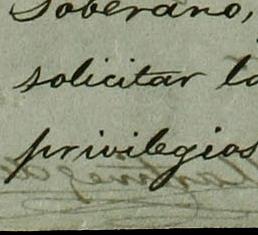 Soberano,
solicitar la
privilegios